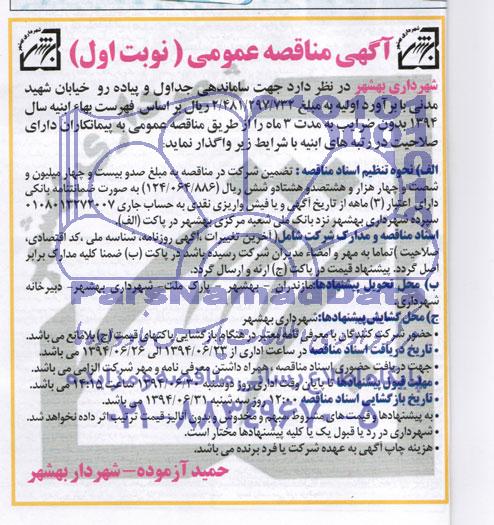 آگهی مناقصه عمومی ( نوبت اول )
شهرداری بهشهر در نظر دارد جهت ساماندهی جداول و پیاده رو خیابان شهید
مدنی با برآورد اولیه به مبلغ ۲/۴۸۱/۲۹۷/۷۳۲ ریال بر اساس فهرست بهاء ابنیه سال
۱۳۹۴ بدون ضرایب به مدت ۳ ماه را از طریق مناقصه عمومی به پیمانکاران دارای
صلاحیت در رتبه های ابنیه با شرایط زیر واگذار نماید:
الف) نحوه تنظیم اسناد مناقصه : تضمین شرکت در مناقصه به مبلغ صدو بیست و چهار میلیون و
شصت و چهار هزار و هشتصدو هشتادو شش ریال (۱۲۴/۰۶۴/۸۸۶) به صورت ضمانتنامه بانکی
دارای اعتبار (۳) ماهه از تاریخ آگهی و یا فیش واریزی نقدی به حساب جاری ۰۱۰۸۰۱۳۲۷۲۰۰۷
سپرده شهرداری بهشهر نزد بانک ملی شعبه مرکزی بهشهر در پاکت (الف)
اسناد مناقصه و مدارک شرکت شامل( آخرین تغییرات ،آگهی روزنامه، شناسه ملی ،کد اقتصادی،
صلاحیت ) تماما به مهر و امضاء مدیران شرکت رسیده باشد در پاکت (ب) ضمنا کلیه مدارک برابر
اصل گردد. پیشنهاد قیمت در پاکت (ج) ارئه و ارسال گردد.
ب) محل تحویل پیشنهادها:مازندران - بهشهر - پارک ملت - شهرداری بهشهر - دبیرخانه
شهرداری.
ج) محل گشایش پیشنهادها: شهرداری بهشهر
• حضور شرکت کنندگان با معرفی نامه معتبر در هنگام بازگشایی پاکتهای قیمت (ج) بلامانع می باشد.
• تاریخ دریافت اسناد مناقصه در ساعت اداری از ۱۳۹۴/۰۶/۲۳ الی ۱۳۹۴/۰۶/۲۶ می باشد.
• جهت دریافت حضوری اسناد مناقصه ، همراه داشتن معرفی نامه و مهر شرکت الزامی می باشد.
• مهلت قبول پیشنهادها تا پایان وقت اداری روز دوشنبه ساعت ۱۴:۱۵ می باشد.
• تاریخ بازگشایی اسناد مناقصه ۱۲:۰۰ روز سه شنبه ۱۳۹۴/۰۶/۳۱ می باشد.
• به پیشنهادها و قیمت های مشروط ،مبهم و مخدوش و بدون آنالیز قیمت ترتیب اثر داده نخواهد شد.
• شهرداری در رد یا قبول یک یا کلیه پیشنهادها مختار است.
• هزینه چاپ آگهی به عهده شرکت یا فرد برنده می باشد.
حمید آزموده - شهردار بهشهر
ParsNamadData